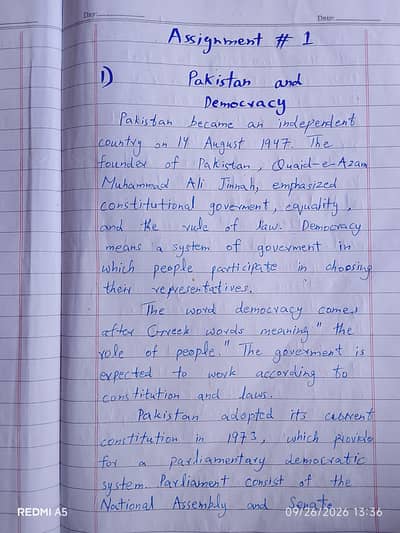 Day:
Date:
Assignment # 1
1) Pakistan and
Democracy
Pakistan became an independent
country on 14 August 1947. The
founder of Pakistan, Quaid-e-Azam
Muhammad Ali Jinnah, emphasized
constitutional goverment, equality,
and the rule of law. Democracy
means a system of goverment in
which people participate in choosing
their representatives.
The word democracy comes
after Greek words meaning "the
role of people." The goverment is
expected to work according to
constitution and laws.
Pakistan adopted its current
constitution in 1973, which provide
for a parliamentary democratic
system. Parliament consist of the
National Assembly and Senate
REDMI A5
09/26/2026 13:36